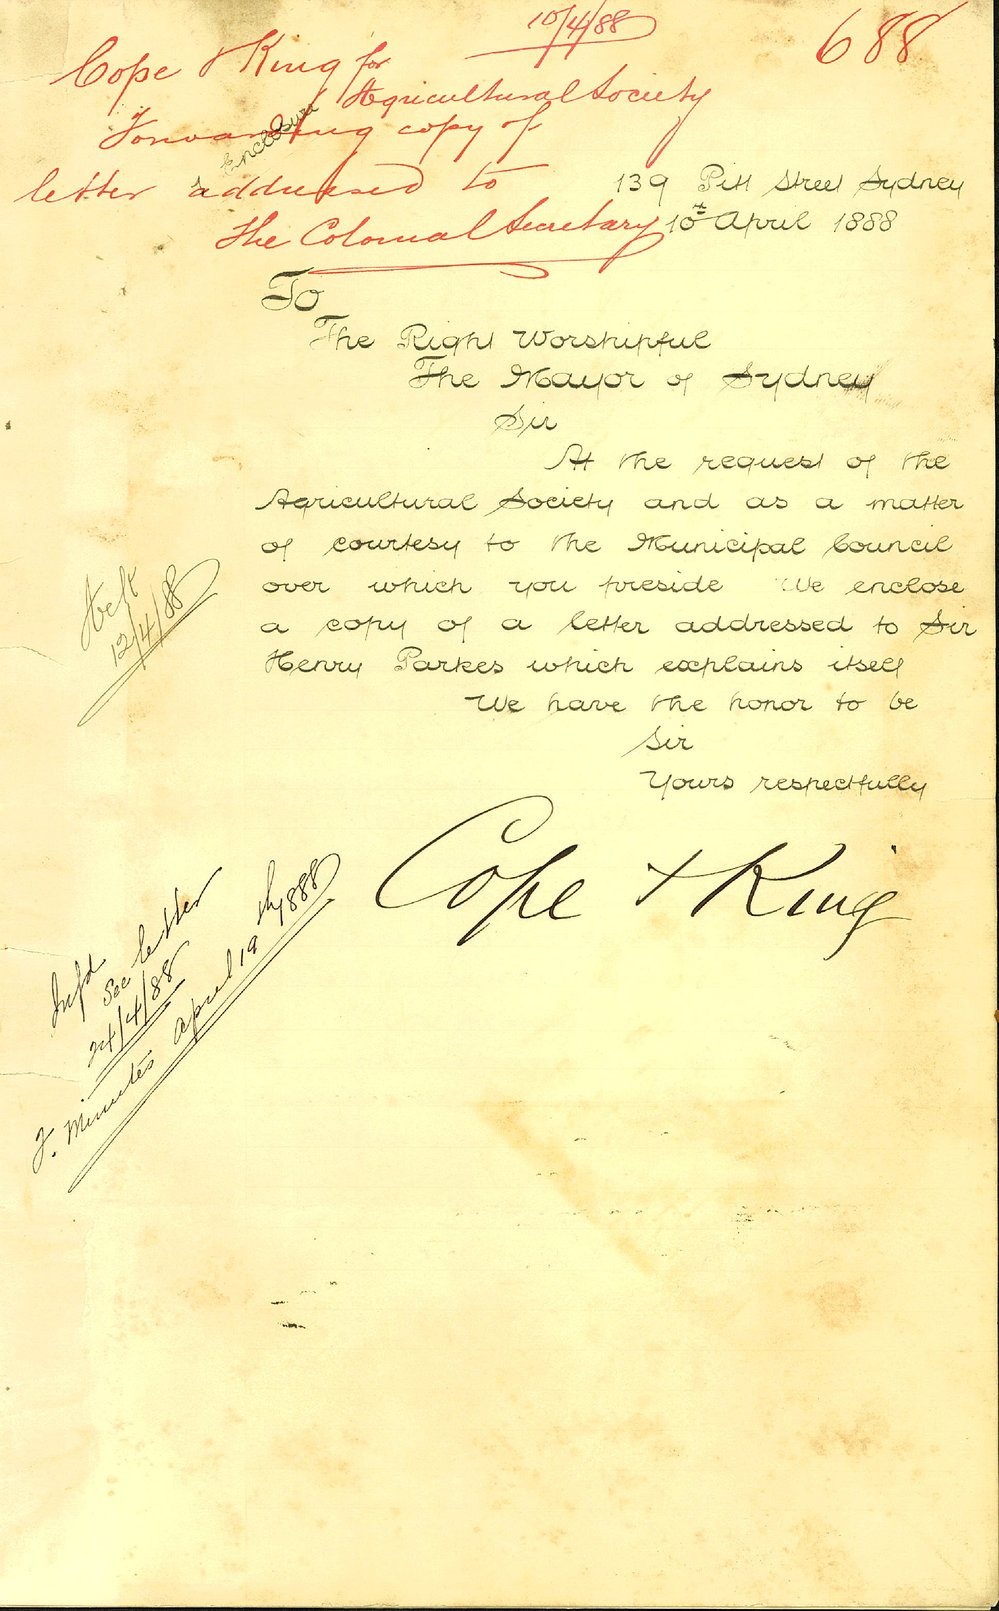 10/4/88
688
Cope & King for
Agricultural Society
Forwarding copy of
letter addressed to
The Colonial Secretary
1 Enclosure
139 Pitt Street Sydney
10th April 1888
To
The Right Worshipful
The Mayor of Sydney
Sir
At the request of the
Agricultural Society and as a matter
of courtesy to the Municipal Council
over which you preside We enclose
a copy of a letter addressed to Sir
Henry Parkes which explains itself
We have the honor to be
Sir
Yours respectfully
Cope & King
12/4/88
Infd
See letter
24/4/88
F. Minutes April 19th 1888